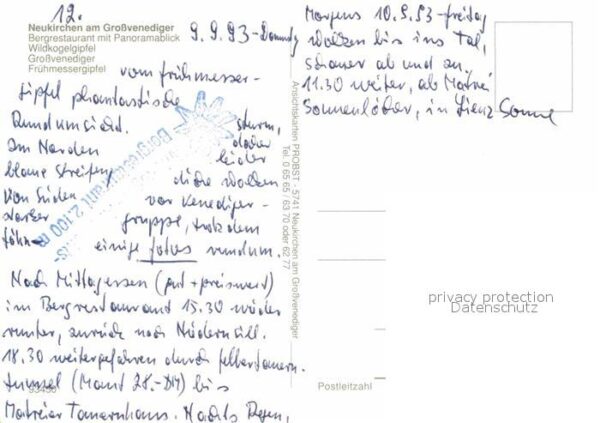 12.
Neukirchen am Großvenediger
Bergrestaurant mit Panoramablick
Wildkogelgipfel
Großvenediger
Frühmessergipfel
9.9.93-Donnerstag
vom Frühmesser-
gipfel phantastische
Rundumsicht.
Im Norden
blaue Streifen
Von Süden
starker
Föhn-
sturm,
daher
leider
dicke Wolken
vor Venediger-
gruppe, trotzdem
einige Fotos rundum.
Nach Mittagessen (gut + preiswert)
im Bergrestaurant 15.30 wieder
runter, zurück nach Niedernsill.
18.30 weitergefahren durch Felbertauern-
tunnel (Maut 28.-DM) bis
Matreier Tauernhaus. Nachts Regen,
Bergrestaurant 2.100 m
Ansichtskarten PROBST - 5741 Neukirchen am Großvenediger
Tel. 0 65 65 / 63 70 oder 62 77
Morgens 10.9.93-Freitag
Wolken bis ins Tal,
Schauer ab und zu,
11.30 weiter, ab Matrei
Sonnenlöcher, in Lienz Sonne
privacy protection
Datenschutz
Postleitzahl